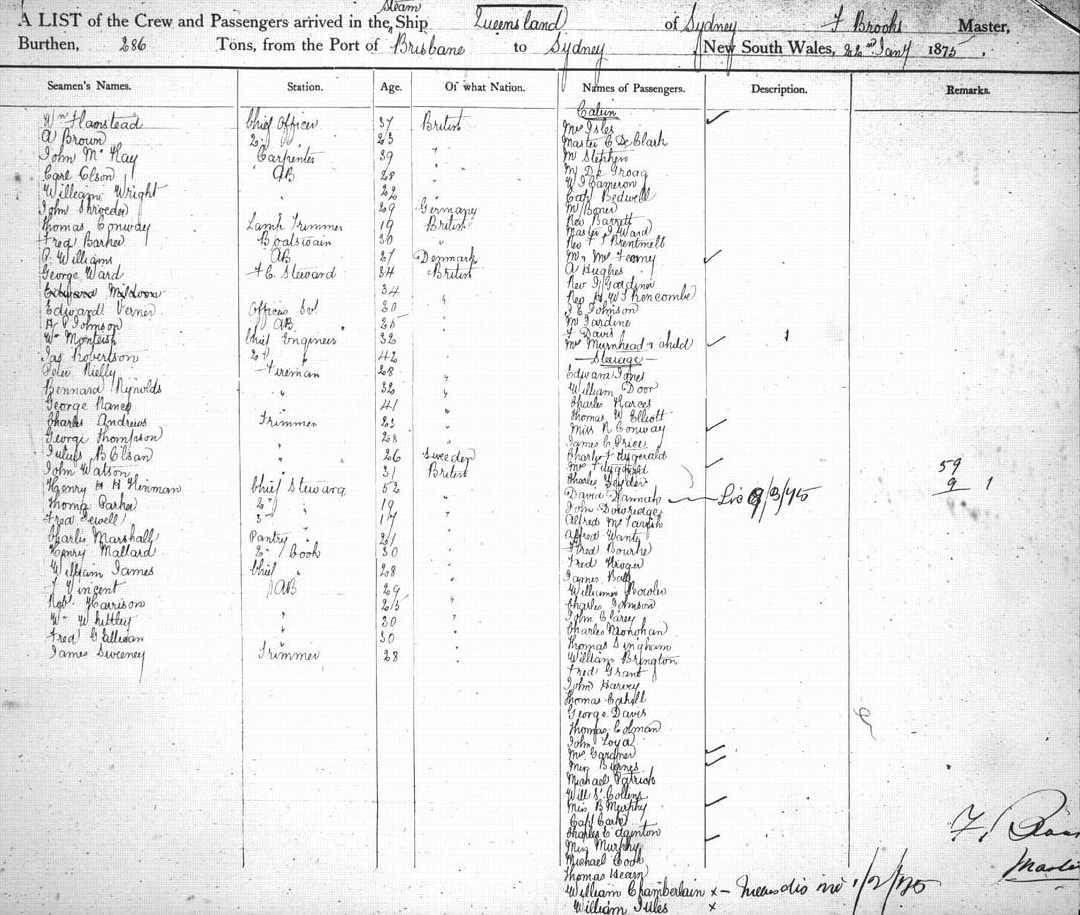 Steam
A LIST of the Crew and Passengers arrived in the Ship Queensland of Sydney F Brooks Master,
Burthen, 286 Tons, from the Port of Brisbane to Sydney New South Wales, 22nd Jany 1875.
Seamen's Names. Station. Age. Of what Nation. Names of Passengers. Description. Remarks.
Wm Hanstead Chief Officer 37 British
A Brown 2nd " 23 "
John McKay Carpenter 39 "
Carl Olson AB 28 "
William Wright " 22 "
John Shroeder " 29 Germany
Thomas Conway Lamp Trimmer 19 British
Fred Barker Boatswain 30 "
P. Williams AB 27 Denmark
George Ward F.C. Steward 34 British
Edward 34
Edward Verner Officers Sv. 30 "
A P Johnson AB 25 "
Wm Monteith Chief Engineer 32 "
Jas Robertson 2nd " 42 "
Peter Rielly Fireman 28 "
Bennard Rynolds " 32 "
George 41 "
Charles Andrews Trimmer 23 "
George Thompson " 28 "
Julius B Olsan " 26 Sweeden
John Watson " 31 British
Henry H Hinman Chief Steward 52 "
Thomas Parker 2nd " 19 "
Fred Sewell 3rd " 17 "
Charlie Marshall Pantry 21 "
Henry Mallard 2nd Cook 30 "
William James Chief " 28 "
J Vincent AB 29 "
Robt Harrison " 25 "
Wm Whittley " 30 "
Fred Gillivan " 30 "
James Sweeney Trimmer 28 "
Cabin
Mrs Isles
Master C De Clark
Mr Stephen
Mr De Groag
W J Cameron
Capt Bedwell
Mr Boner
Rev Barrett
Master J Ward
Rev F T Brentnell
Mr & Mrs Feany
A Hughes
Rev J Gardiner
Rev H W
J E Johnson
Mr Jardine
F Davis
Mrs Muirhead & child 1
Steerage
Edward Jones
William Door
Charles Harces
Thomas W Elliott
Miss R Conway
James C Price
Charles Fitzgerald
Mrs Fitzgerald
Charles Snyder
David Hannah Lic 9/3/75
John Dowridge
Alfred
Alfred Wanty
Fred Bourke
Fred Kroger
James Ball
William Bowler
Charles Johnson
John Clarey
Charles Monohan
Thomas Singham
William Brington
Fred Grant
John Harvey
Thomas Cahill
George Davis
Thomas Colman
John Loyd
Mrs Gardner
Miss Byrnes
Michael Patrick
Will S. Collins
Miss B Murphy
Capt Carter
Charles Edginton
Miss Murphy
Michael Cook
Thomas Hearn
William Chamberlain x 1/2/75
William Jules x
59
9 1
F. Broo
Master